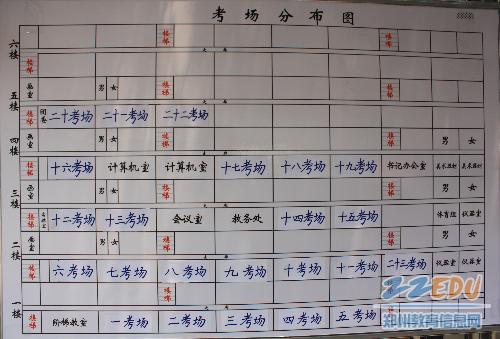 考场分布图
六楼
楼梯 楼梯
楼梯
五楼 画室 男 女 楼梯 楼梯
楼梯 二十考场 二十一考场 二十二考场
四楼 画室 男 女 楼梯 楼梯 男 女
楼梯 十六考场 计算机室 计算机室 十七考场 十八考场 十九考场 书记办公室
三楼 画室 男 女 楼梯 楼梯 男 女
楼梯 十二考场 十三考场 会议室 教务处 十四考场 十五考场 体育组 仪器室
二楼 画室 男 女 楼梯 楼梯 男 女
楼梯 六考场 七考场 八考场 九考场 十考场 十一考场 二十三考场 仪器室 仪器室
楼梯
一楼 楼梯 阶梯教室 一考场 二考场 三考场 四考场 五考场
ZZEDU
郑州教育信息网